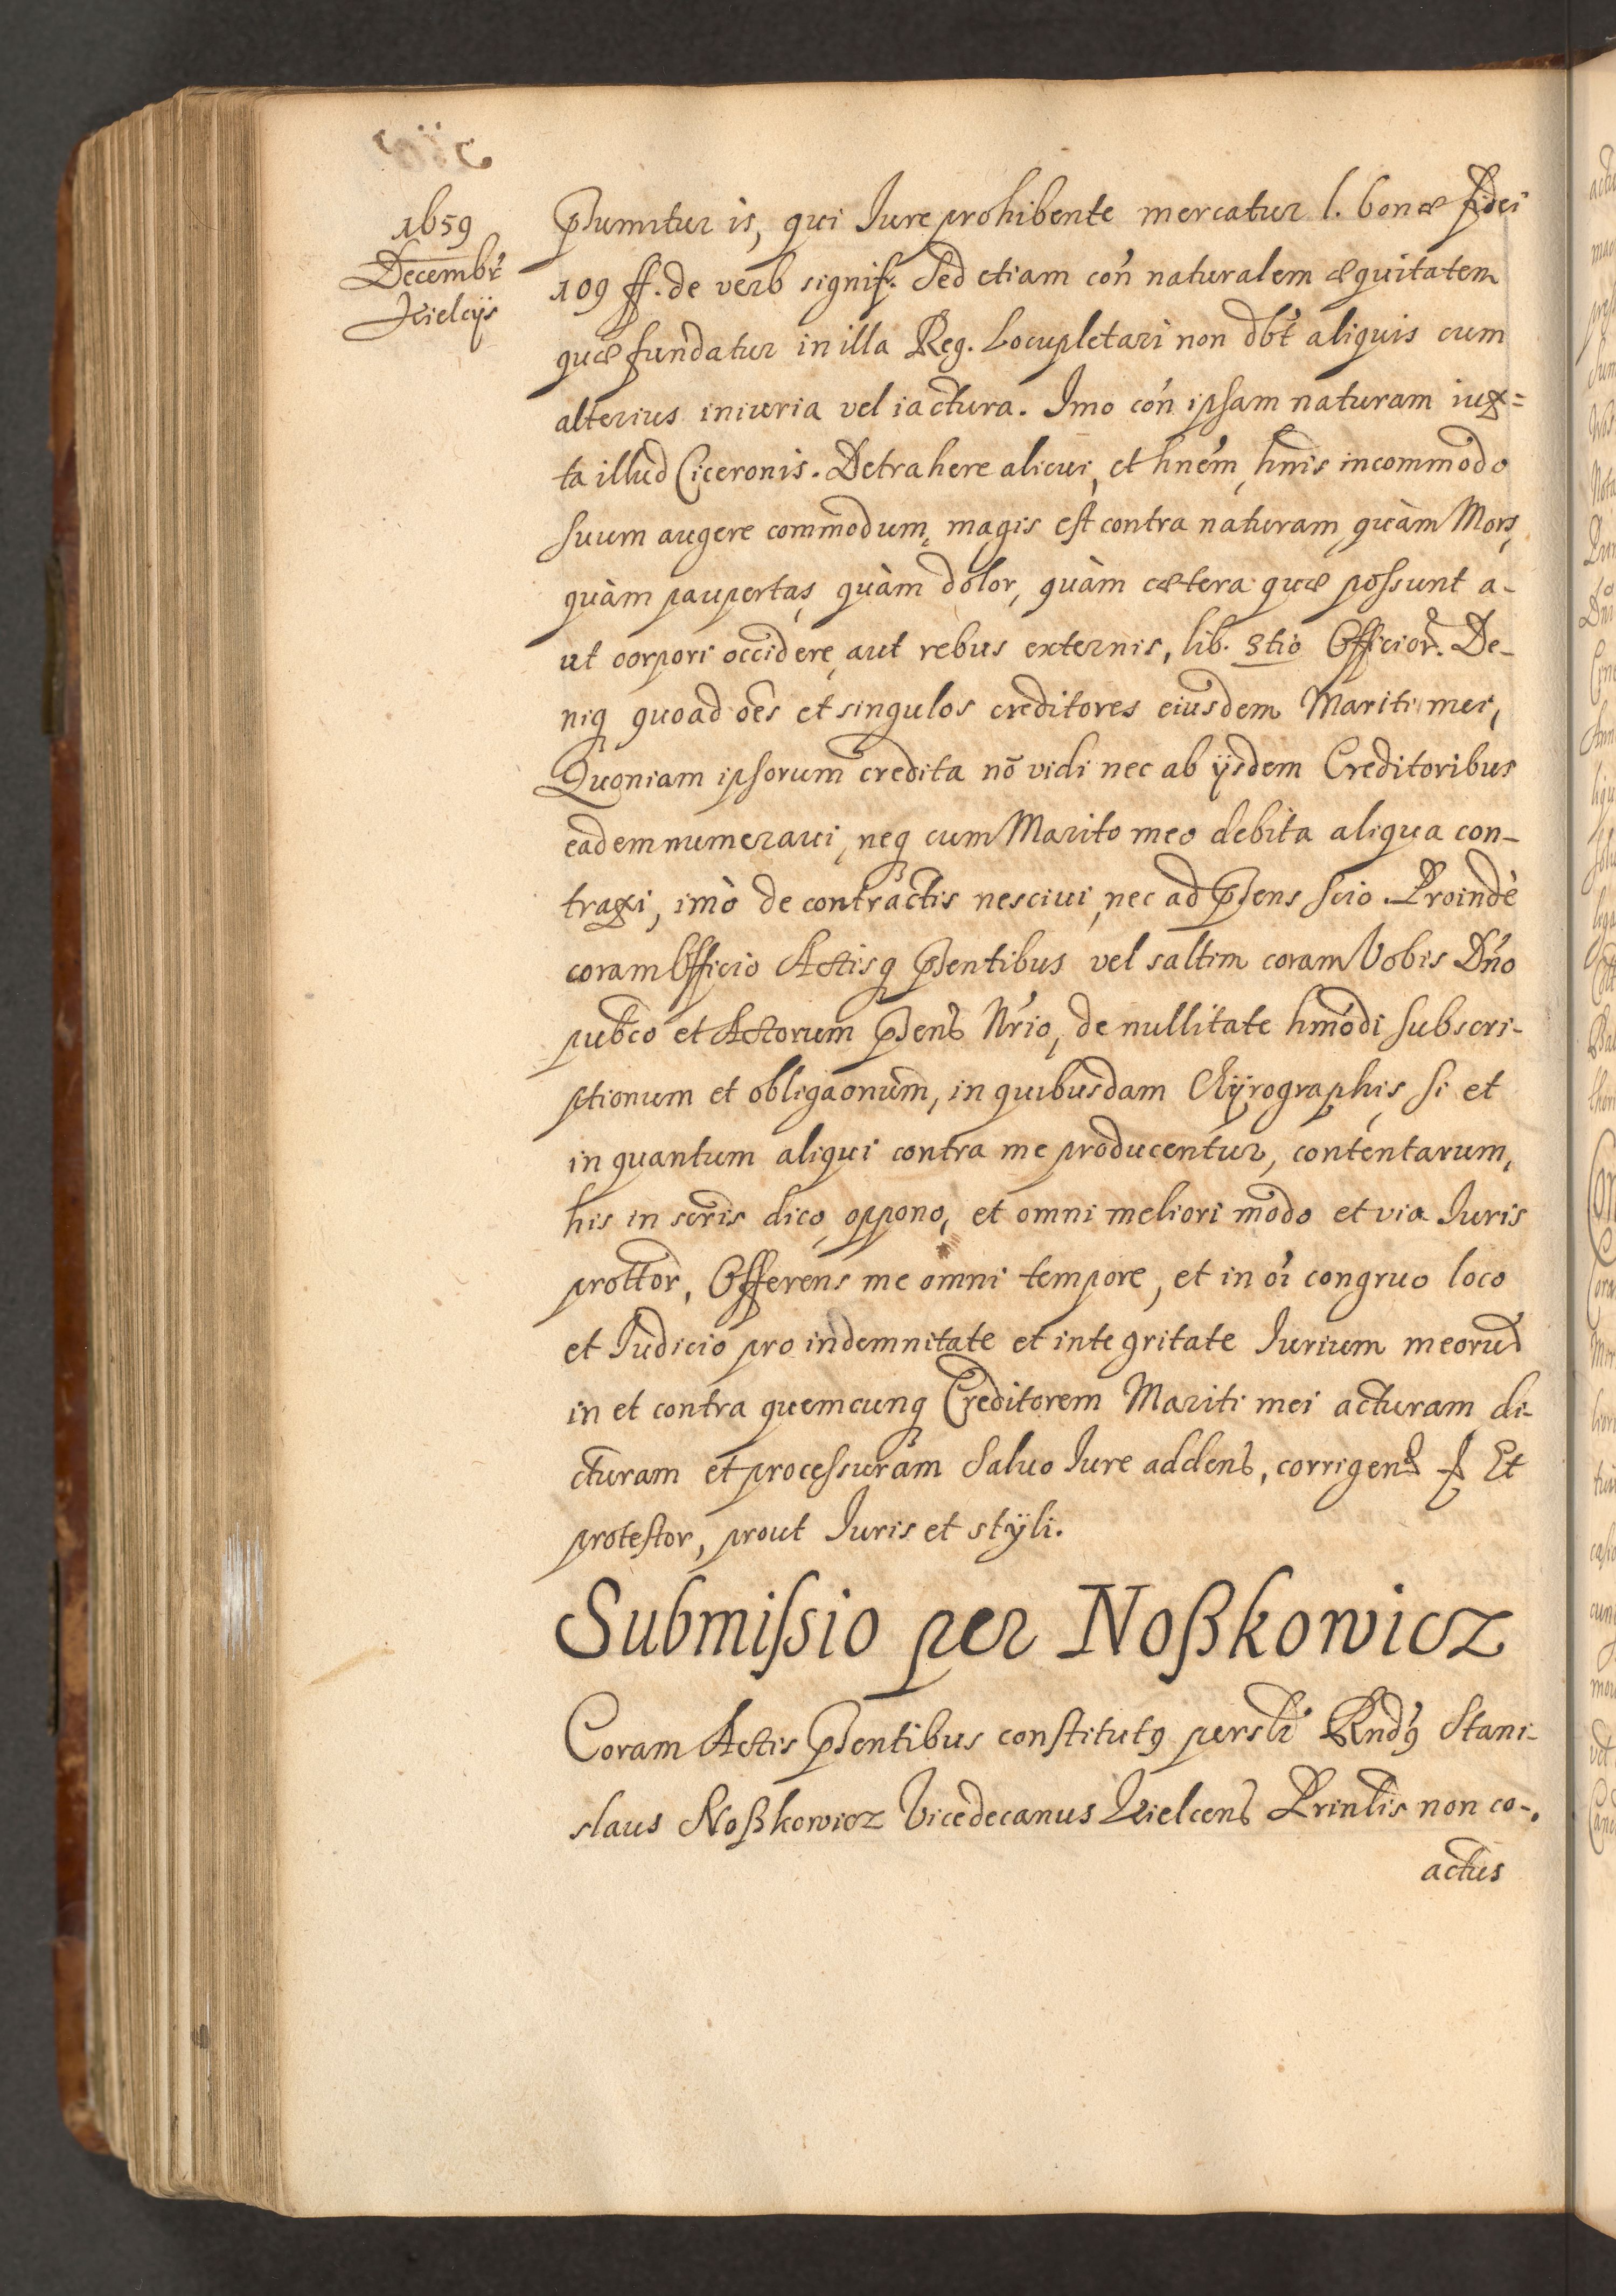 1659
Decembr
Kielcijs
Psumitur is, qui Iure prohibente mercatur l. bonæ fidei
109 ff. de verb signif. Sed etiam con naturalem æquitatem
quæ fundatur in illa Reg. Locupletari non dbt aliquis cum
alterius iniuria vel iactura. Imo con ipsam naturam iux=
ta illud Ciceronis. Detrahere alicui, et hnem, hnis incommodo
suum augere commodum, magis est contra naturam, quàm Mors,
quàm paupertas, quàm dolor, quàm cætera quæ possunt a-
ut corpori occidere, aut rebus externis, lib. 3tio Officior. De-
niq quoad oes et singulos creditores eiusdem Mariti mei,
Quoniam ipsorum credita nō vidi nec ab ijsdem Creditoribus
eadem numeraui, neq cum Marito meo debita aliqua con-
traxi, imò de contractis nesciui, nec ad Psens scio. Proindè
coram Officio Actisq Psentibus vel saltim coram Vobis Dno
pubco et Actorum Psens Nrio, de nullitate hmodi subscri-
ptionum et obligaonum, in quibusdam Chyrographis, si et
in quantum aliqui contra me producentur, contentarum,
his in scris dico, oppono, et omni meliori modo et via Iuris
prottor, Offerens me omni tempore, et in oi congruo loco
et Iudicio pro indemnitate et integritate Iurium meorum
in et contra quemcunq Creditorem Mariti mei acturam di-
cturam et processuram Saluo Iure addend, corrigend Et
protestor, prout Iuris et styli.
Submissio per Noßkowicz
Coram Actis Psentibus constitutus persli Rndus Stani-
slaus Noßkowicz Vicedecanus Kielcens Prinlis non co-
actus